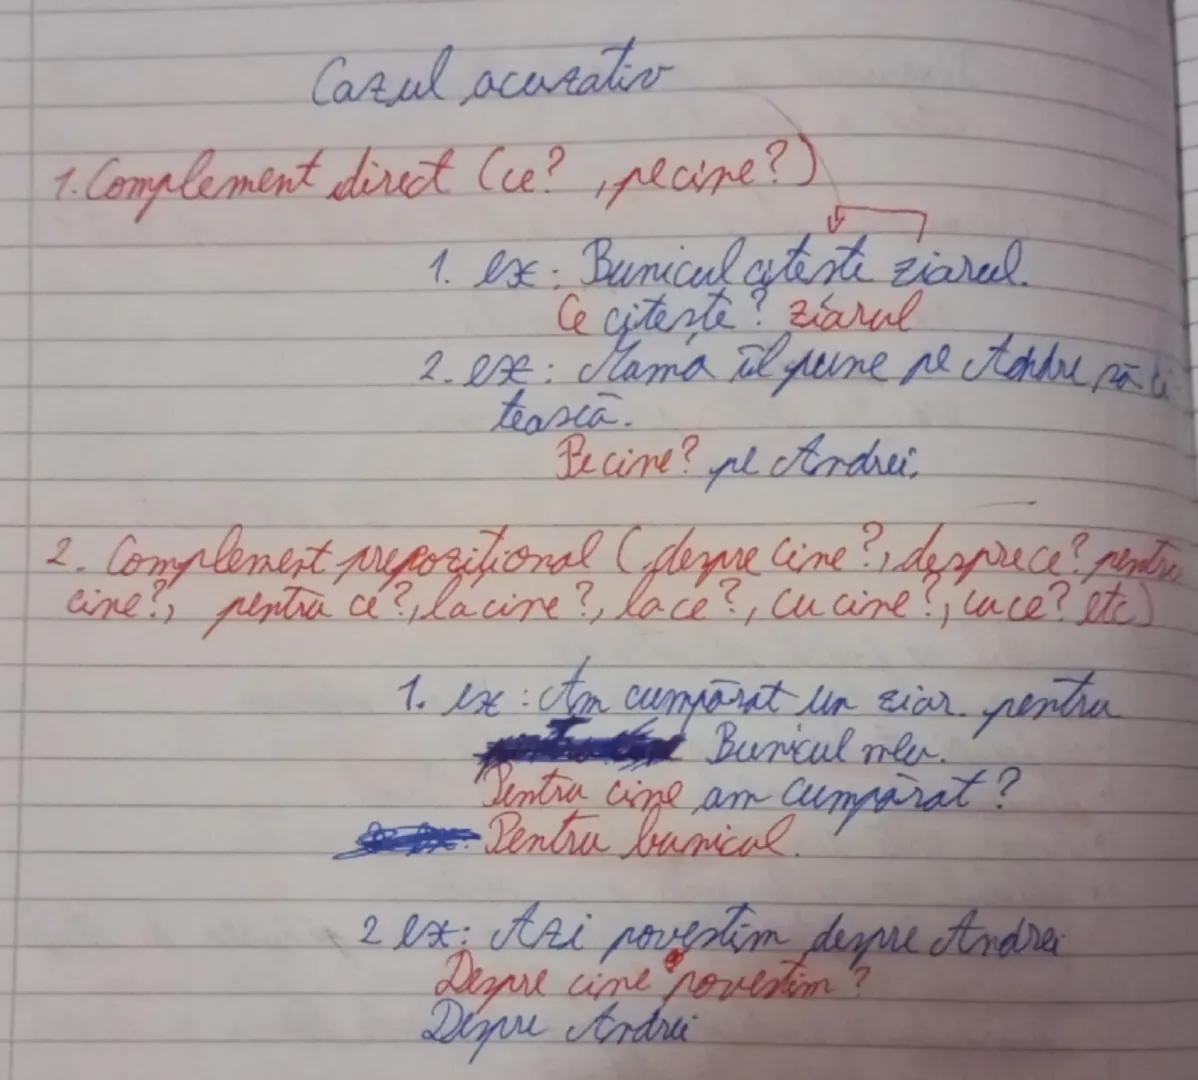 Cazul acuzativ
1. Complement direct (ce?, pe cine?)
1. ex: Bunicul citește ziarul.
Ce citește? ziarul
2. ex: Mama îl pune pe Andre să ci
tească.
Pe cine? pe Andrei.
2. Complement prepozițional (despre cine?, despre ce? pentru
cine?, pentru ce?, la cine?, la ce?, cu cine?, cu ce? etc)
1. ex: Am cumpărat un ziar pentru
Bunicul meu.
Pentru cine am cumpărat?
Pentru bunicul.
2 ex: Azi povestim despre Andrei
Despre cine povestim?
Despre Andrei